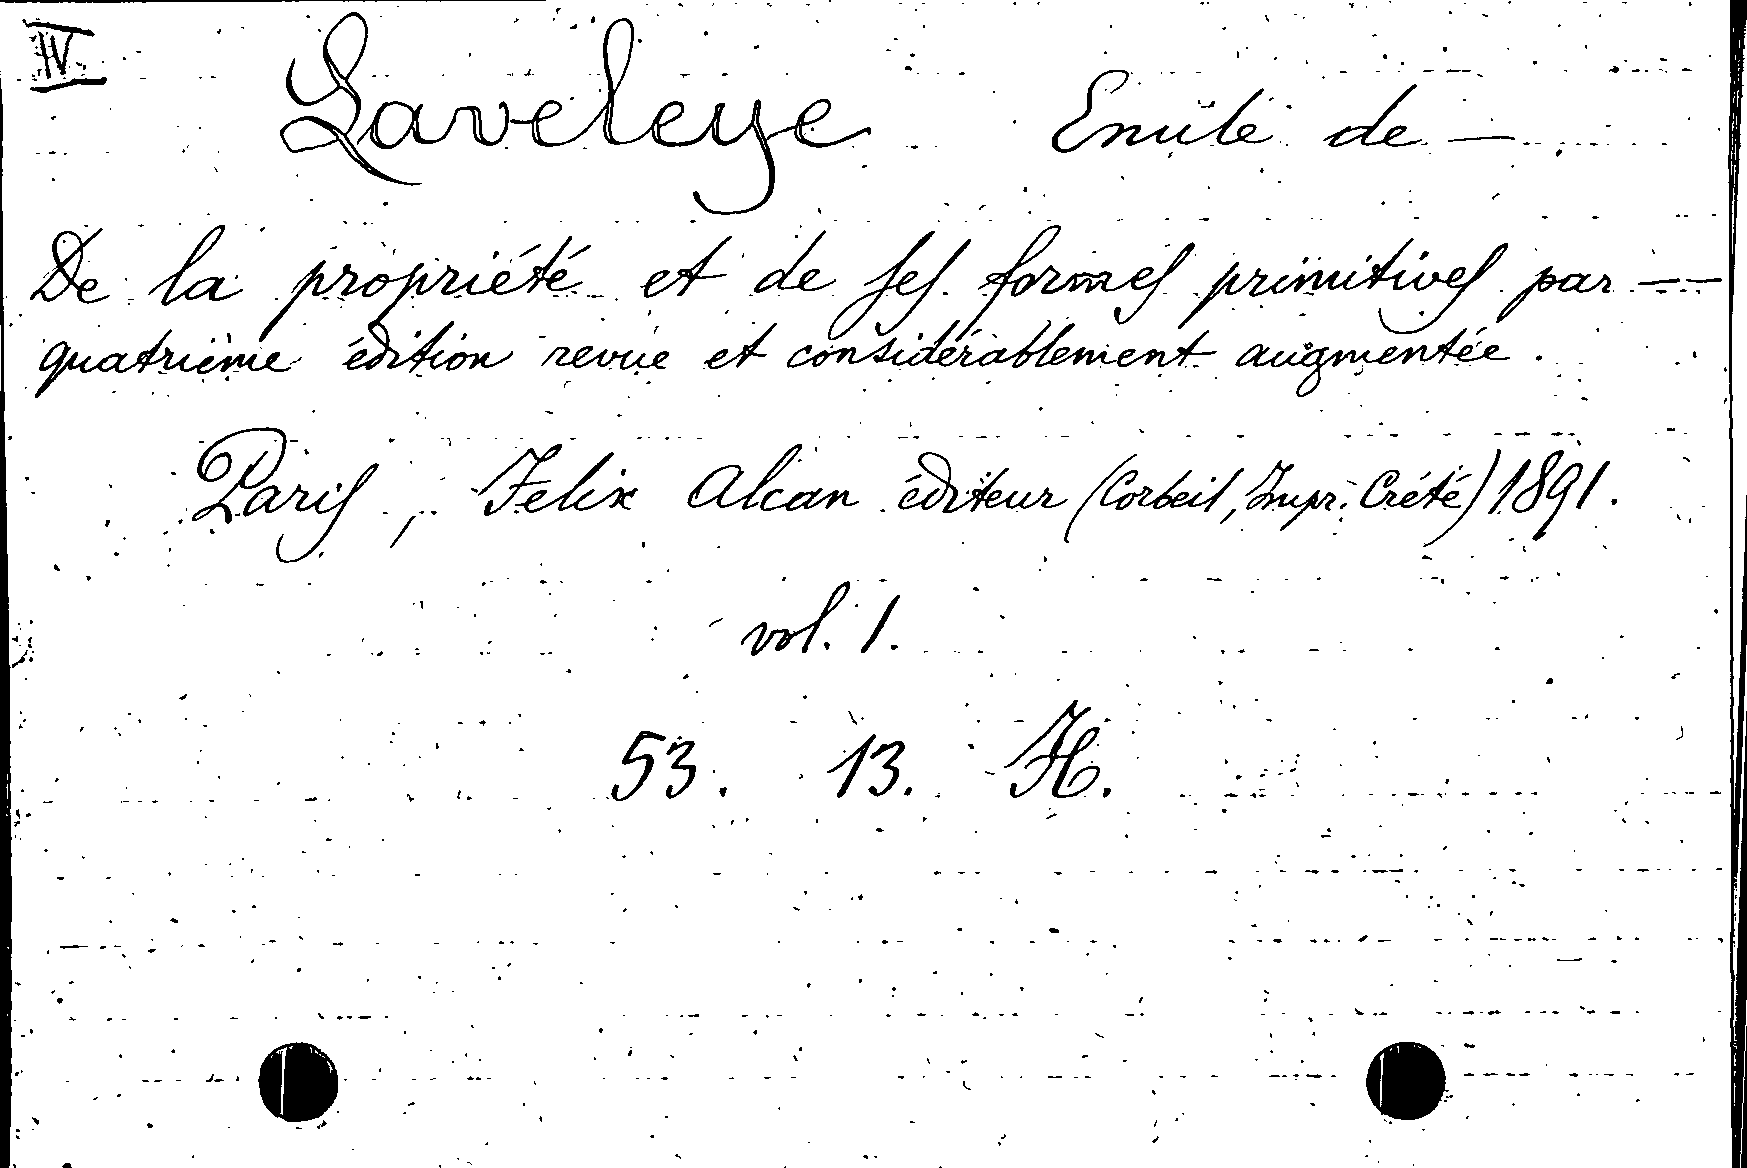 IV
Laveleye Emile de —
De la propriété et de ses formes primitives par —
quatrième édition revue et considérablement augmentée.
Paris, Felix Alcan éditeur (Corbeil, Impr. Crété) 1891.
vol. 1.
53. 13. H.